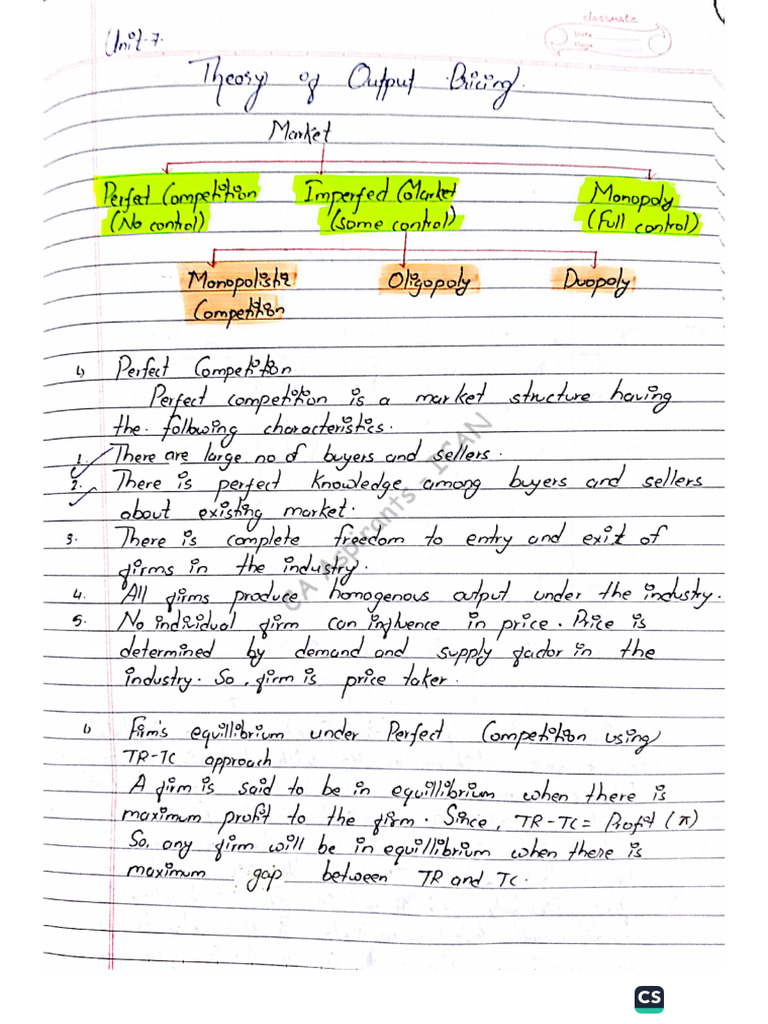 classmate
Date
Page
Unit-7.
Theory of Output Pricing.
Market
Perfect Competition Imperfect Market Monopoly
(No control) (some control) (Full control)
Monopolistic Oligopoly Duopoly
Competition
1) Perfect Competition
Perfect competition is a market structure having
the following characteristics.
1. There are large no of buyers and sellers.
2. There is perfect knowledge among buyers and sellers
about existing market.
3. There is complete freedom to entry and exit of
firms in the industry.
4. All firms produce homogenous output under the industry.
5. No individual firm can influence in price. Price is
determined by demand and supply factor in the
industry. So, firm is price taker.
CA Aspirants - ICAN
1) Firm's equillibrium under Perfect Competition using
TR-TC approach
A firm is said to be in equillibrium when there is
maximum profit to the firm. Since, TR-TC = Profit (π)
So, any firm will be in equillibrium when there is
maximum gap between TR and TC.
CS